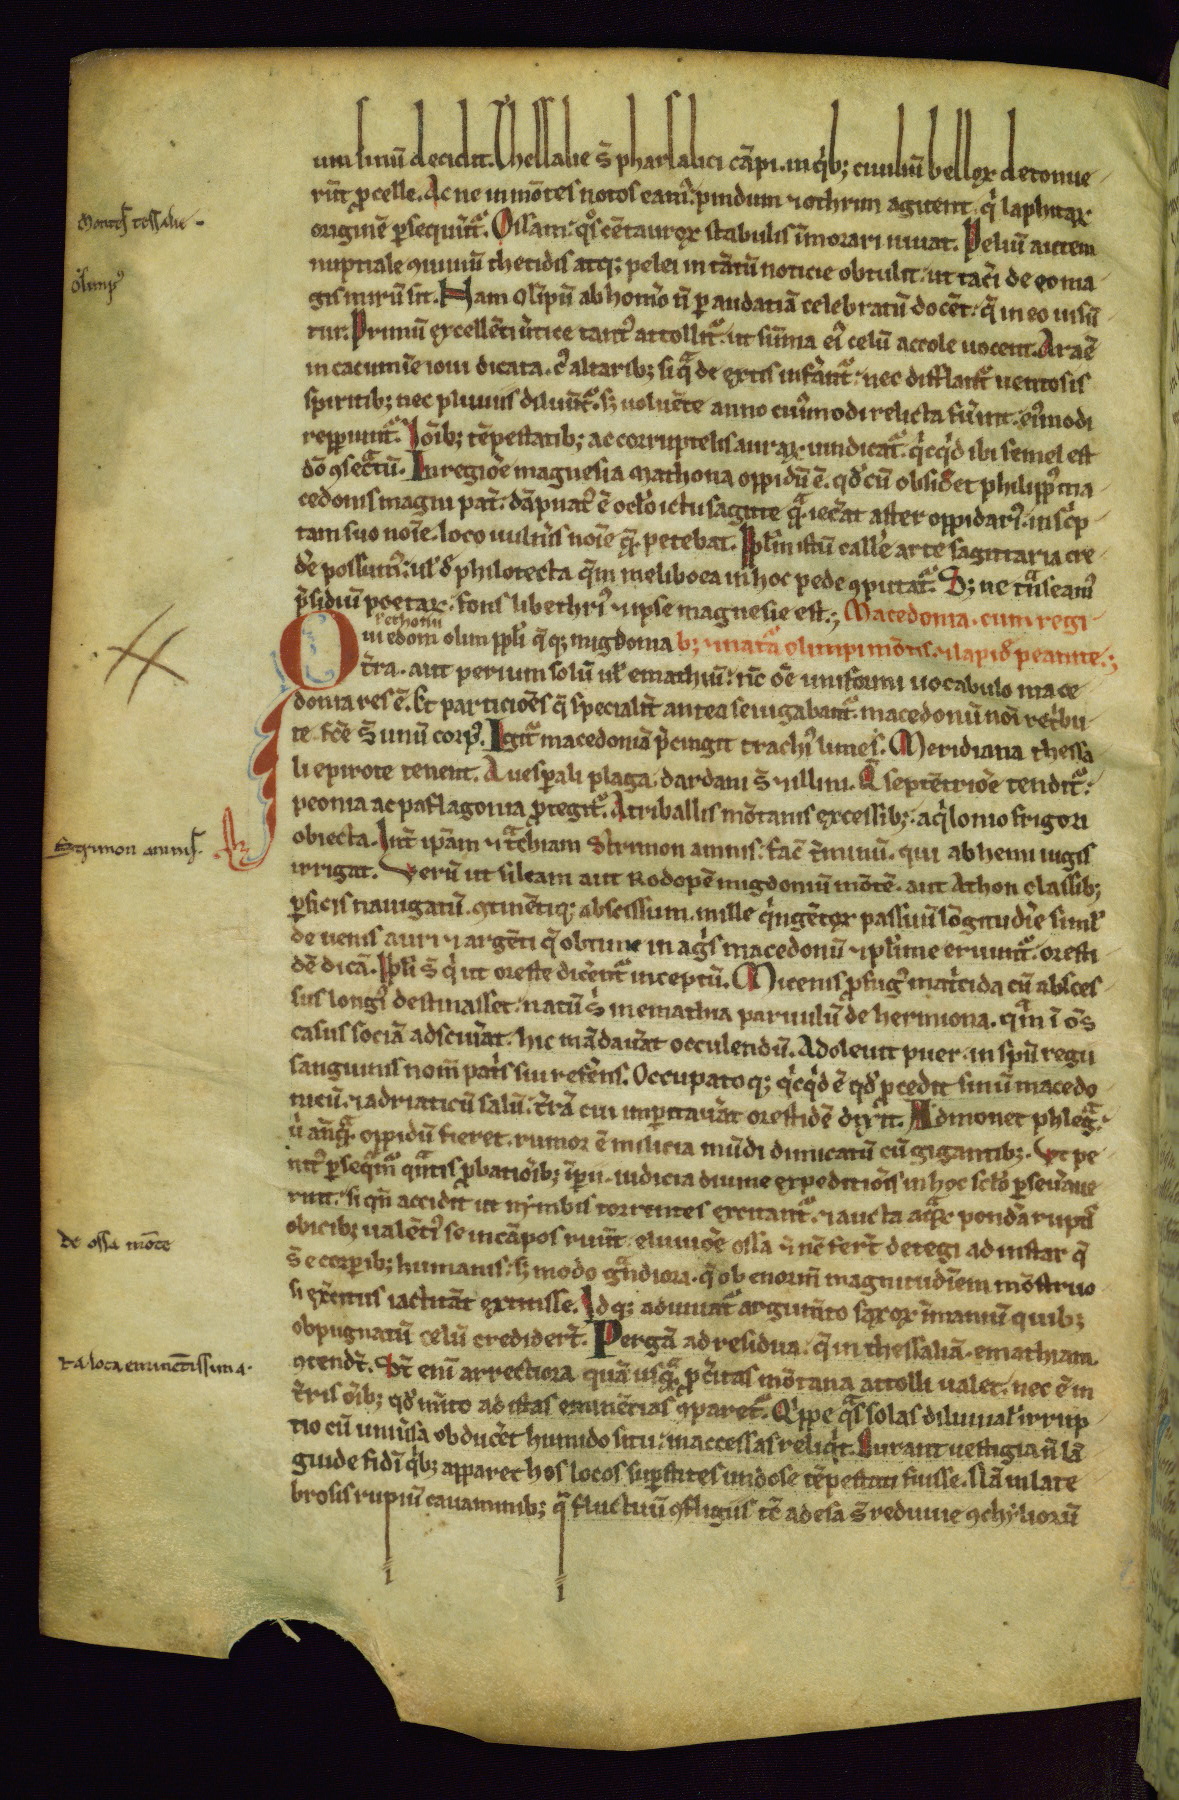 um sinū decidit. Thessalie s̄ pharsalici cāpi. in qⁱb; ciuiliū belloꝝ detonue
rūt ꝓcelle. Ac ne in mōtes notos eamꝰ. pindum ⁊ othrim agitent. qⁱ laphitaꝝ
originē ꝑsequūtᷣ. Ossam: qͦs cētauroꝝ stabulis īmorari iuuat. Peliū autem
nuptiale ꝯuiuiū thetidis atq; pelei in tātū noticie obtulit. ut tac̄i de eo ma
gis mirū sit. Nam olīpū ab homo̅ n̄ ꝑ audatiā celebratū docēt. q̄ in eo uisū
tur. Primū excellēti ūtice tantꝰ attollitᷣ. ut sūma eiꝰ celū accole uocent. Ara ē
in cacumīe ioui dicata. cꝰ altarib; si qᷓ de extis inferūtᷣ. nec difflantᷣ uentosis
spiritib; nec pluuiis diluūtᷣ. sꝫ uoluēte anno cuiꝰmodi relicta fūint. eiꝰmodi
repꝑiuntᷣ. Iōib; tēpestatib; ac corruptelis auraꝝ uindicatᷣ. qⁱcqⁱd ibi semel est
dō ꝯsec̄tū. In regiōe magnesia mathona oppidū ē. qd̓ cū obsid̓et philippꝰ ma
cedonis magni pat̄. dāpnatꝰ ē oc̄lo ictu sagitte qᷓ iec̄at aster oppidanꝰ. insc̄p
tam suo noīe. loco uuln̄is noīe qᷓ petebat. Pplīn istū calle̅ arte sagittaria cre
de̅ possumꝰ. ul̓ d̓ philotecta qⁱm meliboea in hoc pede ꝯputatᷣ. S; ne tⁿseamꝰ
p̄sidiū poetaꝝ. fons libethriꝰ ⁊ ipse magnesie est. Macedonia. cum regi
Qui edoni olim ppl̓i q̄q; migdonia b; ⁊ natᷣa olimpi mōtis. ⁊ lapid̓ peanite.
t̄ra. aut perium solū ul̓ emathiū. nc̄ oē uniformi uocabulo mace
donia res ē. Et particiōes q̄ specialit̄ antea seuigabantᷣ. macedonū noī ret̄bu
te. fc̄e s̄ unū corpꝰ. Igitᷣ macedoniā p̄cingit trachiꝰ limes. Meridiana thessa
li epirote tenent. A uesꝑali plaga. dardani s̄ ⁊ illirii. Qᷓ septētriōe tenditᷣ.
peonia ac paflagonia ꝓtegitᷣ. A triballis mōtanis excessib;. aqⁱlonio frigori
obiecta. Int̄ ip̄am ⁊ tᷓchiam Strimon amnis. fac̄ t̄minū. qui ab hemi iugis
irrigat. Verū ut sileam aut Rodopē migdoniū mōtē. aut Athon classib;
ꝑsicis nauigatū. ꝯtinētiq; abscissum. mille qⁱngētoꝝ passuū lōgitudīe simł
de uenis auri ⁊ argēti q̄ obtime in agⁱs macedonū ⁊ plīme eruuntᷣ. oresti
dē dicā. Ppl̓i s̄ qⁱ ut oreste dic̄entᷣ inceptū. Micenis ꝓfugꝰ mat̄cida cū absces
sus longiꝰ destinasset. natū sⁱ in emathia paruulū de hermiona. qⁱm ī oēs
casus sociā adsciuāt. hic mādau̅at occulendū. Adoleuit puer. in spīn regii
sanguinis nom̄ patⁱs sui refēns. Occupatoq; qⁱcqⁱd ē qd̓ ꝓcedit sinū macedo
nicū. ⁊ adriaticū salū. t̄rā cui imꝑitau̅at orestidē dixit. Admonet phleg̅ᷓ.
ū anqᷓ oppidū fieret. rumor ē milicia mūdi dimicatū cū gigantib;. Vt pe
nitꝰ ꝑseqᷣmᷣ qⁿtis ꝓbatiōib; īꝑii. iudicia diuine expeditiōis in hoc sclo̅ ꝑseūaue
runt. si qn̄ accidit ut nimbis torrentes excitantᷣ. ⁊ aucta aqᷓꝝ pond̓a ruptis
obicib; ualētiꝰ se in cāpos ruūt. eluuiōe ossa ⁊ nc̄ fert̄ detegi ad instar q̄
s̄ e corꝑib; humanis. sꝫ modo gⁿdiora. q̄ ob enorm̄ magnitudīem mōstruo
si exc̄itus iactitāt extitisse. Idq; adiuuatᷣ argumt̄o saxoꝝ īmaniū quib;
obpugnatū celū credider̄t. Pergā ad residua. q̄ in thessaliā. emathiam
ꝯtendt̄. St̄ enī arrectiora quā usqᷓ ꝓc̄itas mōtana attolli ualet. nec ē in
t̄ris ōib; qd̓ mt̄o ad istas eminētias ꝯparetᷣ. Qⁱppe qᷓs solas diluuiał irrup
tio cū uniūsa obducēt humido situ. inaccessas reliqⁱt. Durant uestigia n̄ lā
guide fidī qⁱb; apparet hos locos suꝑstites undose tēpestati fuisse. Nā in late
brosis rupiū cauaminib; qᷓ fluctuū ꝯfligūs tc̄ adesa s̄ reduuie ꝯchiliorū
Montes tessalie
olimpꝰ
Strimon amnis.
de ossa mōte
sta loca eminētissima.